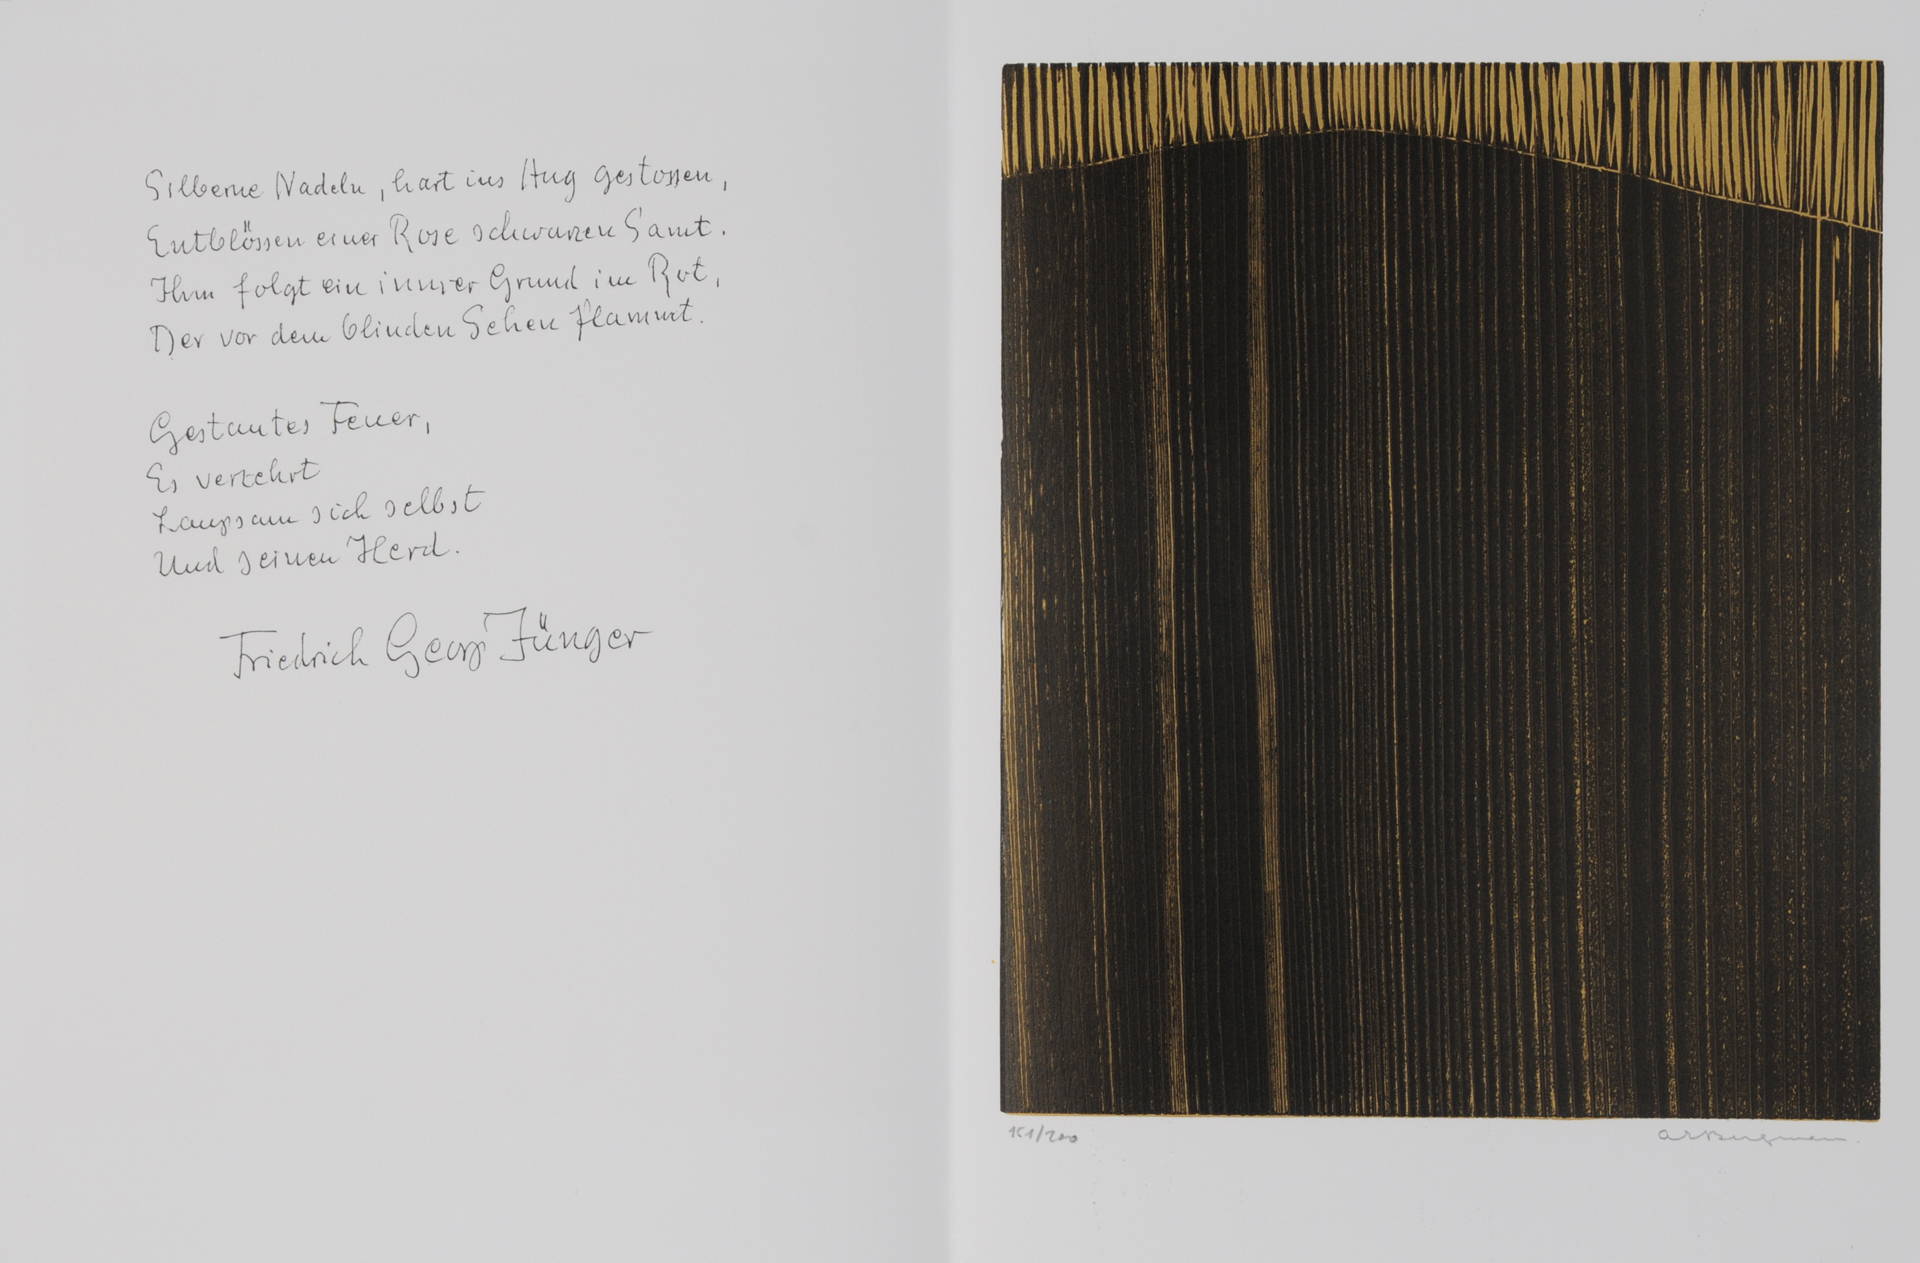 Silberne Nadeln, hart ins Aug gestossen,
Entblössen einer Rose schwarzen Samt.
Ihm folgt ein innrer Grund im Rot,
Der vor dem blinden Sehen flammt.
Gestautes Feuer,
Es verzehrt
Langsam sich selbst
Und seinen Herd.
Friedrich Georg Jünger
151/200